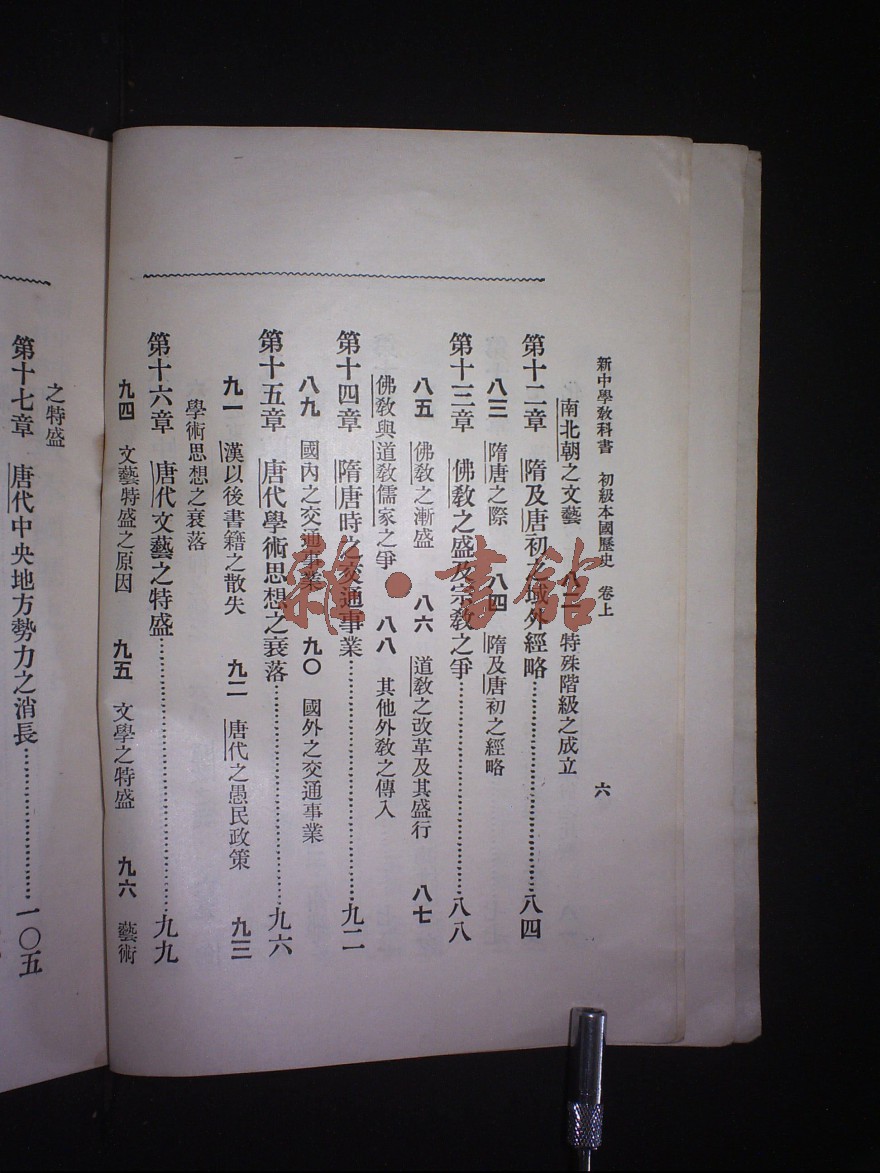 新中學教科書 初級本國歷史 卷上 六
南北朝之文藝 八二 特殊階級之成立
第十二章 隋及唐初之域外經略……………………八四
八三 隋唐之際 八四 隋及唐初之經略
第十三章 佛教之盛及宗教之爭……………………八八
八五 佛教之漸盛 八六 道教之改革及其盛行 八七
佛教與道教儒家之爭 八八 其他外教之傳入
第十四章 隋唐時之交通事業……………………九二
八九 國內之交通事業 九〇 國外之交通事業
第十五章 唐代學術思想之衰落……………………九六
九一 漢以後書籍之散失 九二 唐代之愚民政策 九三
學術思想之衰落
第十六章 唐代文藝之特盛……………………九九
九四 文藝特盛之原因 九五 文學之特盛 九六 藝術
之特盛
第十七章 唐代中央地方勢力之消長……………………一〇五
雜·書館